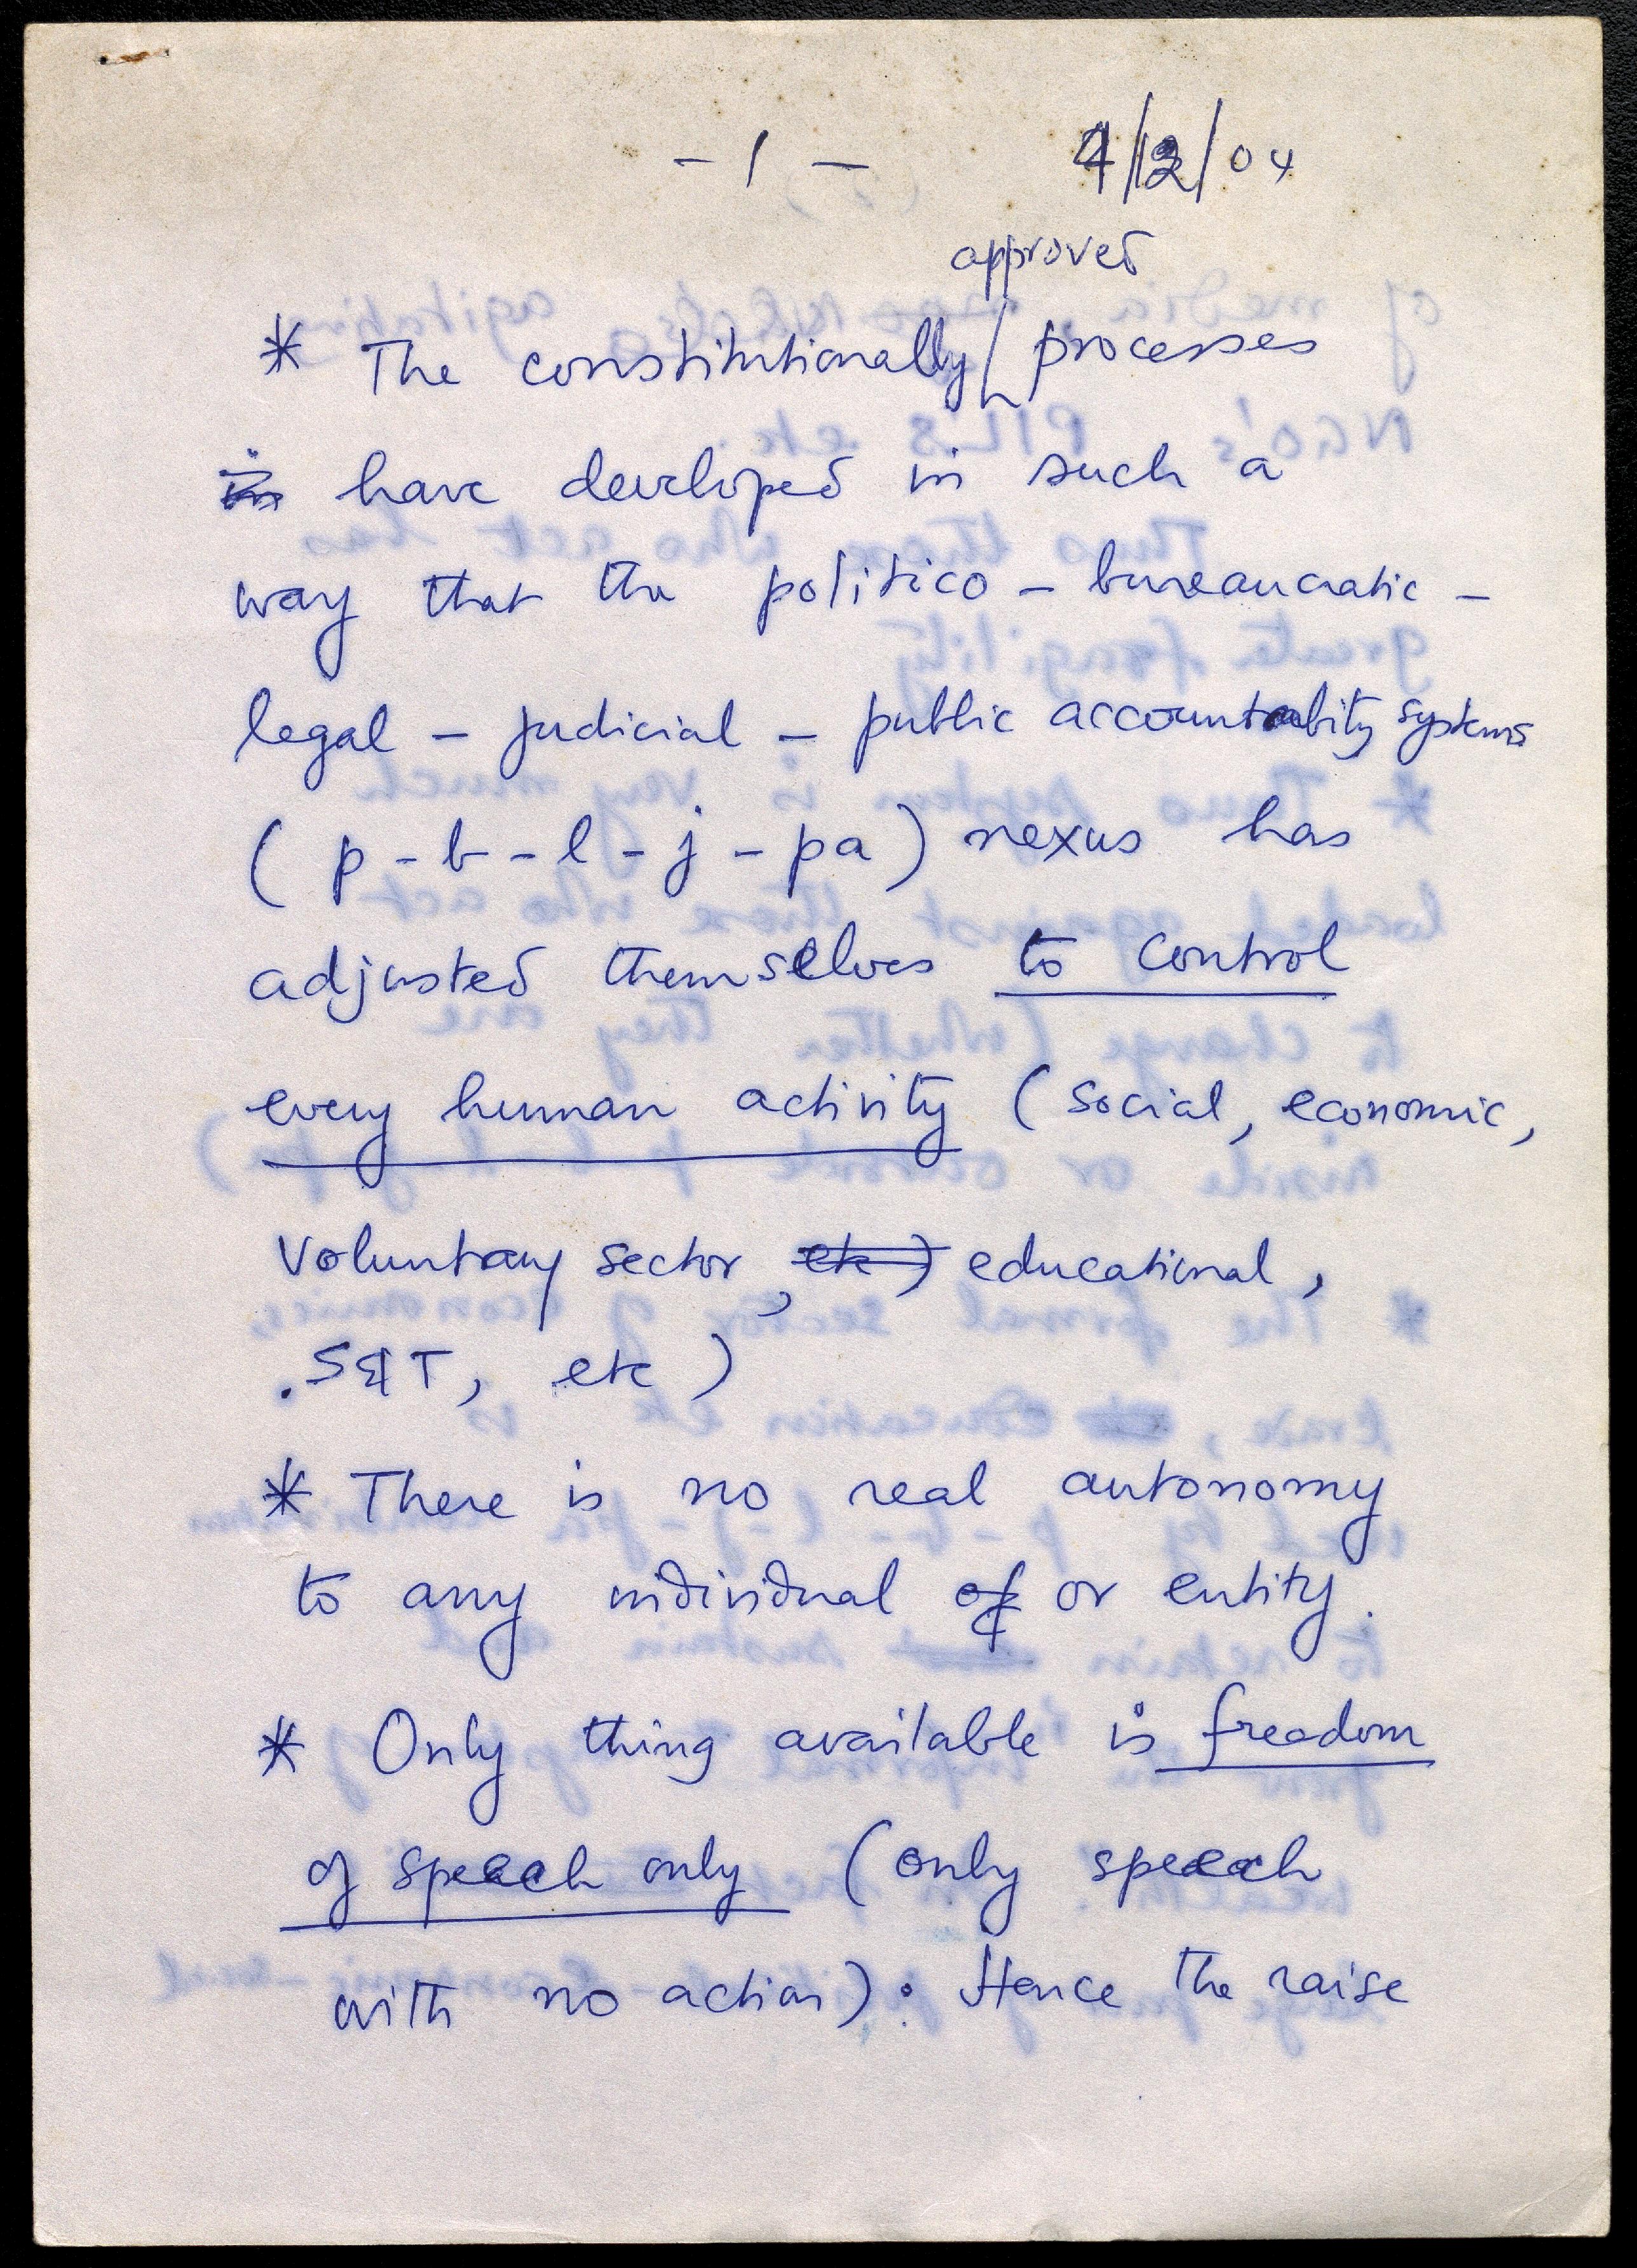 - 1 - 4/12/04
approved
* The constitutionally processes
in have developed in such a
way that the politico - bureaucratic -
legal - judicial - public accountability systems
( p - b - l - j - pa ) nexus has
adjusted themselves to control
every human activity ( social, economic,
voluntary sector, etc ) educational,
S&T, etc )
* There is no real autonomy
to any individual of or entity.
* Only thing available is freedom
of speech only (only speech
with no action). Hence the raise